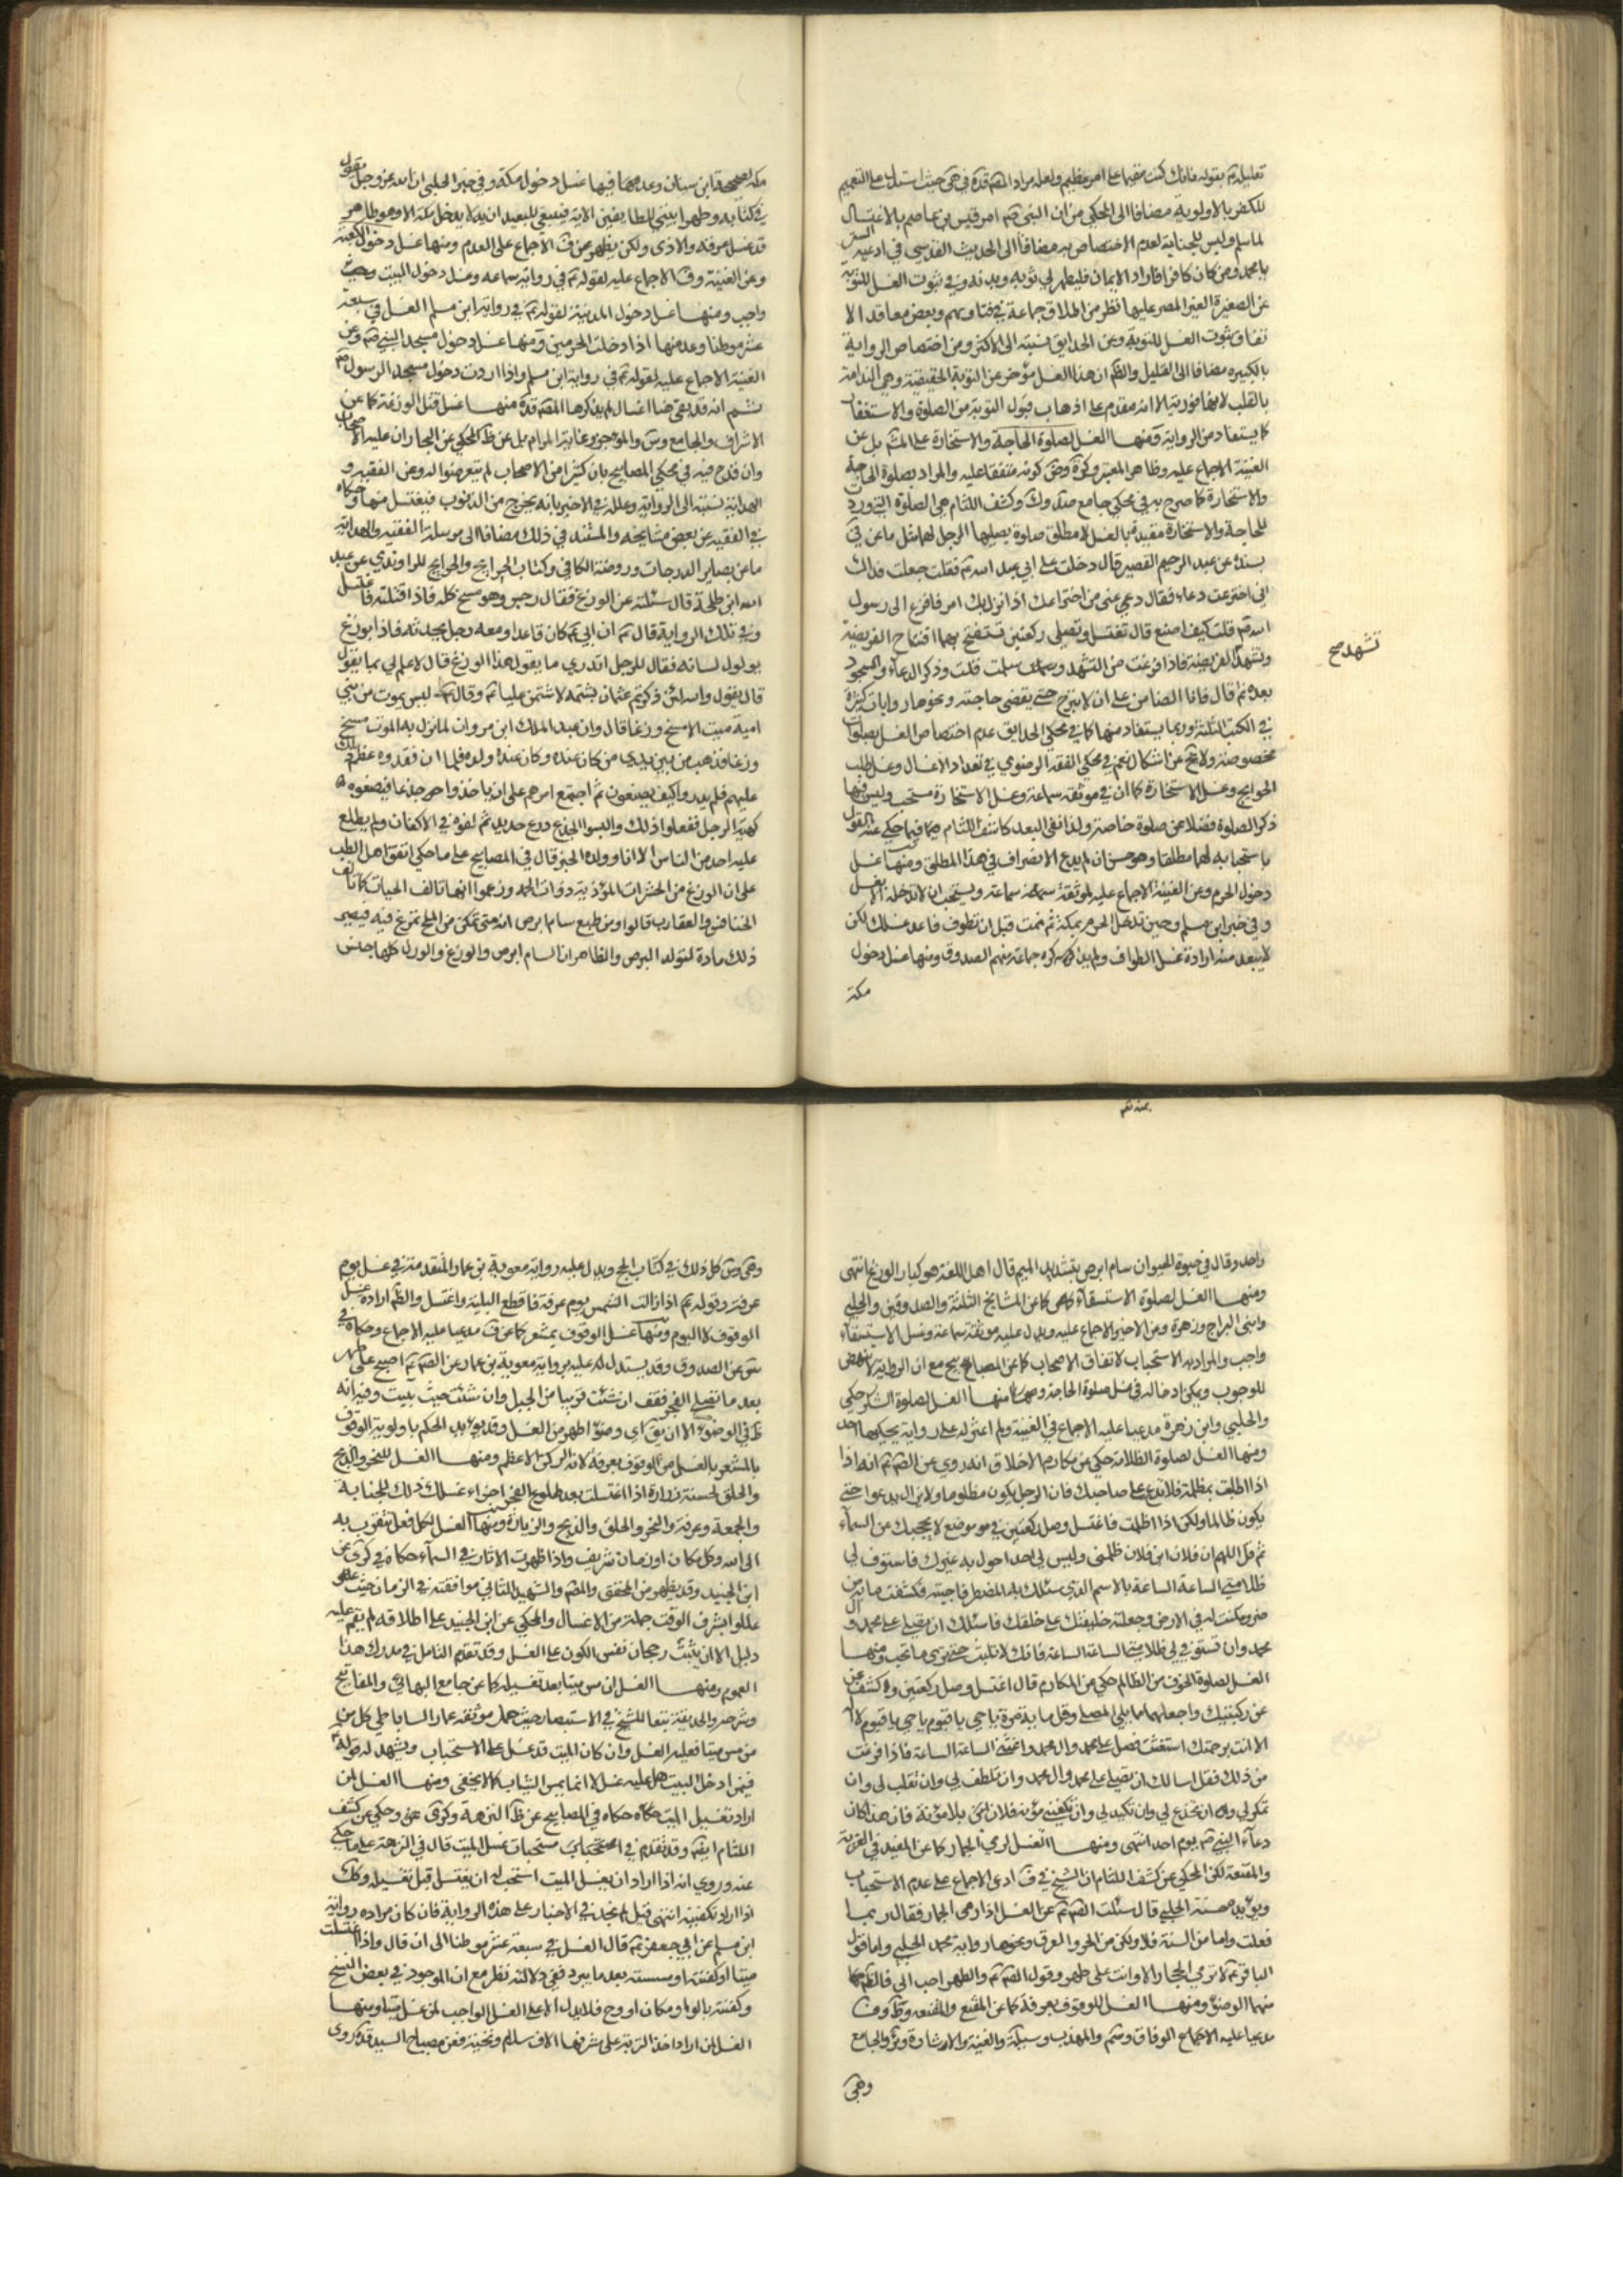 تعليله ع بقوله فانك كنت مقيما على امر عظيم ولعله مراد المصه قده في حيث استدل على التعميم
للكفر بالاولوية مضافا الى المحكي من ان النبي ص امر قيس بن عاصم بالاغتسال
لما اسلم وليس للجنابة لعدم الاختصاص به مضافا الى الحديث القدسي في ادعية السر
يا محمد ومن كان كافرا فاراد الايمان فليطهر لي ثوبه وبدنه وفي ثبوت الغسل للتوبة
عن الصغيرة الغير المصر عليها نظر من اطلاق جماعة في فتاويهم وبعض معاقد الا
تفاق بثبوت الغسل للتوبة وعن الحدايق نسبته الى الاكثر ومن اختصاص الرواية
بالكبيره مضافا الى القليل والظم ان هذا الغسل مؤخر عن التوبة الحقيقية وهي الندامة
بالقلب لانها فورية الا انه مقدم على اذهاب قبول التوبة من الصلوة والاستغفار
كما يستفاد من الرواية ومنها الغسل لصلوة الحاجة والاستخارة على المشهر بل عن
الغنية الاجماع عليه وظاهر المعتبر وكرة وحق كونه متفقا عليه والمراد بصلوة الحاجة
والاستخارة كما صرح به في محكي جامع صد وك وكشف اللثام هي الصلوة التي ورد
للحاجة والاستخارة مقيدة بالغسل لا مطلق صلوة يصليها الرجل لهما مثل ما عن في
بسنده عن عبد الرحيم القصير قال دخلت على ابي عبد الله ع فقلت جعلت فداك
اني اخترعت دعاء فقال دعني من اختراعك اذا نزل بك امر فافزع الى رسول
الله ص قلت كيف اصنع قال تغتسل وتصلي ركعتين تستفتح بهما افتتاح الفريضة
وتشهد الفريضة فاذا فرغت من التشهد وسلمت قلت وذكر الدعاء والسجود
بعده ثم قال فانا الضامن على الله ان لا يبرح حتى يقضى حاجته ونحوها روايات كثيرة
في الكتب الثلثة وربما يستفاد منها كما في محكي الحدايق عدم اختصاص الغسل بصلوات
مخصوصة ولا يخ عن اشكال نعم في محكي الفقه الرضوي في تعداد الاغسال وغسل طلب
الحوايج وغسل الاستخارة كما ان في موثقه سماعة وغسل الاستخارة مستحب وليس فيها
ذكر الصلوة فضلا عن صلوة خاصة ولذا نفى البعد كاشف اللثام فيما حكي عنه القول
باستحبابه لهما مطلقا وهو حسن ان لم يدع الانصراف في هذا المطلق ومنها غسل
دخول الحرم وعن الغنية الاجماع عليه لموثقة سماعة ويستحب ان لا تدخله الا بغسل
وفي خبر ابن مسلم وحين تدخل الحرم بمكة ثم نمت قبل ان تطوف فاعد غسلك لكن
لا يبعد منه ارادة غسل الطواف ولم يذكره جماعة منهم الصدوق ومنها غسل دخول
مكة
تشهد صح
مكة لصحيحة ابن سنان وعد منها فيها غسل دخول مكة وفي خبر الحلبي ان الله عز وجل يقول
في كتابه وطهرا بيتي للطايفين الاية فينبغي للعبد ان لا يدخل مكة الا وهو طاهر
قد غسل عرقه والاذى ولكن يظهر من ف الاجماع على العدم ومنها غسل دخول الكعبة
وعن الغنية وف الاجماع عليه لقوله ع في رواية سماعه وغسل دخول البيت وحيث
واجب ومنها غسل دخول المدينة لقوله ع في رواية ابن مسلم الغسل في سبعة
عشر موطنا وعد منها اذا دخلت الحرمين ومنها غسل دخول مسجد النبي ص وعن
الغنية الاجماع عليه لقوله ع في رواية ابن مسلم واذا اردت دخول مسجد الرسول ص
ثم انه قد بقي هنا اغسال لم يذكرها المصه قده منها غسل قتل الوزغة كما عن
الاشراف والجامع وس والموجز وغاية المرام بل عن ظ المحكي عن البحار ان عليه الاصحاب
وان قدح فيه في محكي المصابيح بان كثيرا من الاصحاب لم يتعرضوا له وعن الفقيه و
الهداية نسبته الى الرواية وعلله في الاخير بانه يخرج من الذنوب فيغتسل منها وحكاه
في الفقيه عن بعض مشايخه والمستند في ذلك مضافا الى مرسلة الفقيه والهداية
ما عن بصاير الدرجات وروضة الكافي وكتاب الخرايج والجرايح للراوندي عن عبد
الله ابن طلحة قال سئلته عن الوزغ فقال رجس وهو مسخ كله فاذا قتلته فاغتسل
وفي تلك الرواية قال ع ان ابي ع كان قاعدا ومعه رجل يحدثه فاذا بوزغ
يولول لسانه فقال للرجل اتدري ما يقول هذا الوزغ قال لا علم لي بما يقول
قال يقول والله لئن ذكرتم عثمان بشتمة لاشتمن عليا ع وقال ع ليس يموت من بني
امية ميت الا مسخ وزغا قال وان عبد الملك ابن مروان لما نزل به الموت مسخ
وزغا فذهب من بين يدي من كان عنده وكان عنده ولده فلما ان فقدوه عظم ذلك
عليهم فلم يدروا كيف يصنعون ثم اجتمع امرهم على ان ياخذوا جذعا فيصنعوه
كهيئة الرجل ففعلوا ذلك والبسوا الجذع درع حديد ثم لفوه في الاكفان ولم يطلع
عليه احد من الناس الا انا وولده الخبر قال في المصابيح على ما حكي اتفق اهل الطب
على ان الوزغ من الحشرات المؤذية ذوات السم وزعموا انها تالف الحيات كما تالف
الخنافس والعقارب قالوا ومن طبع سام ابرص انه متى تمكن من الملح تمرغ فيه فيصير
ذلك مادة لتولد البرص والظاهر ان السام ابرص والوزغ والورل كلها جنس
واحد وقال في حيوة الحيوان سام ابرص بتشديد الميم قال اهل اللغة هو كبار الوزغ انتهى
ومنها الغسل لصلوة الاستسقاء كما عن المشايخ الثلثة والصدوقين والحلبي
وابني البراج وزهرة وعن الاخير الاجماع عليه ويدل عليه موثقة سماعة وغسل الاستسقاء
واجب والمراد به الاستحباب لاتفاق الاصحاب كما عن المصابيح مع ان الرواية لا تنهض
للوجوب ويمكن ادخاله في غسل صلوة الحاجة ومنها الغسل لصلوة الشكر حكي
والحلبي وابن زهرة مدعيا عليه الاجماع في الغنية ولم اعثر له على رواية يحكيها احد
ومنها الغسل لصلوة الظلامة حكي عن مكارم الاخلاق انه روي عن الصم ع انه اذا
اذا طلبت بمظلمة فلا تدع على صاحبك فان الرجل يكون مظلوما ولا يزال يدعوا حتى
يكون ظالما ولكن اذا اظلمت فاغتسل وصل ركعتين في موضع لا يحجبك عن السماء
ثم قل اللهم ان فلان ابن فلان ظلمني وليس لي احد اصول به غيرك فاستوف لي
ظلامتي الساعة الساعة بالاسم الذي سئلك به المضطر فاجبته فكشفت ما به من
ضر ومكنت له في الارض وجعلته خليفتك على خلقك فاسئلك ان تصلي على محمد و آل
محمد وان تستوفي لي ظلامتي الساعة الساعة فانك لا تلبث حتى ترى ما تحب ومنها
الغسل لصلوة الخوف من الظالم حكي من المكارم قال اغتسل وصل ركعتين وكشف عن
عن ركبتيك واجعلهما مما يلي المصلى وقل ماية مرة يا حي يا قيوم يا حي يا قيوم لا اله
الا انت برحمتك استغيث فصل على محمد وال محمد واغثني الساعة الساعة فاذا فرغت
من ذلك فقل اسالك ان تصلي على محمد وال محمد وان تلطف لي وان تغلب لي وان
تمكر لي وان تخدع لي وان تكيد لي وان تكفيني مؤنة فلان بلا مؤنة فان هذا كان
دعاء النبي ص يوم احد انتهى ومنها الغسل لرمي الجمار كما عن المفيد في العزية
والمقنعة لكن المحكي عن كشف اللثام ان الشيخ في ف ادعى الاجماع على عدم الاستحباب
ويؤيده حسنة الحلبي قال سئلت الصم ع عن الغسل اذا رمى الجمار فقال ربما
فعلت واما من السنة فلا ولكن من الحر والعرق ونحوها رواية محمد الحلبي واما قول
الباقر ع لا ترمي الجمار الا وانت على طهر وقول الصم ع والطهر احب الي فالظم
منهما الوضوء ومنها الغسل للوقوف بعرفة كما عن المقنع والمقنعه وط وف
مدعيا عليه الاجماع الوفاق وسم والمهذب وسيلة والغنية والاشارة وير والجامع
وهى
وهى وس كل ذلك في كتاب الحج ويدل عليه رواية معوية بن عمار المتقدمة في غسل يوم
عرفة وقوله ع اذا زالت الشمس يوم عرفة فاقطع التلبية واغتسل والظم ارادة غسل
الوقوف لا اليوم ومنها غسل الوقوف بمشعر كما عن ف مدعيا عليه الاجماع وحكاه في
عن الصدوق وقد يستدل له عليه برواية معوية بن عمار عن الصم ع اصبح على طهر
بعد ما تصلي الفجر فقف ان شئت قريبا من الجبل وان شئت حيث تبيت وفيه انه
ظ في الوضوء الا ان يق اي وضوء اطهر من الغسل وقد يؤيد الحكم باولوية الوقوف
بالمشعر بالغسل من الوقوف بعرفة لانه الركن الاعظم ومنها الغسل للنحر والذبح
والحلق لحسنة زرارة اذا اغتسلت بعد طلوع الفجر اجزاء غسلك ذلك للجنابة
والجمعة وعرفة والنحر والحلق والذبح والزيارة ومنها الغسل لكل فعل تتقرب به
الى الله وكل مكان او زمان شريف واذا ظهرت الاثار في السماء حكاه في كرى عن
ابن الجنيد وقد يظهر من المحقق والمصه والشهيد الثاني موافقته في الزمان حيث
عللوا بشرف الوقت جملة من الاغسال والمحكي عن ابن الجنيد على اطلاقه لم يقم عليه
دليل الا ان يثبت رجحان نفس الكون على الغسل وقد تقدم التامل في مدرك هذا
العموم ومنها الغسل ان مس ميتا بعد تغسيله كما عن جامع البهائي والمفاتيح
وشرحه والحديقة تبعا للشيخ في الاستبصار حيث حمل موثقه عمار الساباطي كل من
من مس ميتا فعليه الغسل وان كان الميت قد غسل على الاستحباب ويشهد له قوله ع
فيمن ادخل البيت هل عليه غسل لا انما يمس الثياب كما لا يخفى ومنها الغسل لمن
اراد تغسيل الميت حكاه في المصابيح عن ظ النزهة وكرى وحكي عن كشف
اللثام ايضه وقد تقدم في مستحبات غسل الميت قال في النزهة على ما حكي
عنه وروي انه اذا اراد ان يغسل الميت استحب له ان يغتسل قبل تغسيله وكك
اذا اراد تكفينه انتهى قيل لم نجد في الاخبار على هذه الرواية فان كان مراده رواية
ابن مسلم عن ابي جعفر ع قال الغسل في سبعة عشر موطنا الى ان قال واذا غسلت
ميتا او كفنته او مسسته بعد ما يبرد ففي دلالته نظر مع ان الموجود في بعض النسخ
وكفنته بالواو مكان او وح فلا يدل الا على الغسل الواجب لمن غسل ميتا ومنها
الغسل لمن اراد اخذ التربة على مشرفها الاف سلام وتحية فعن مصباح السيد قده روى